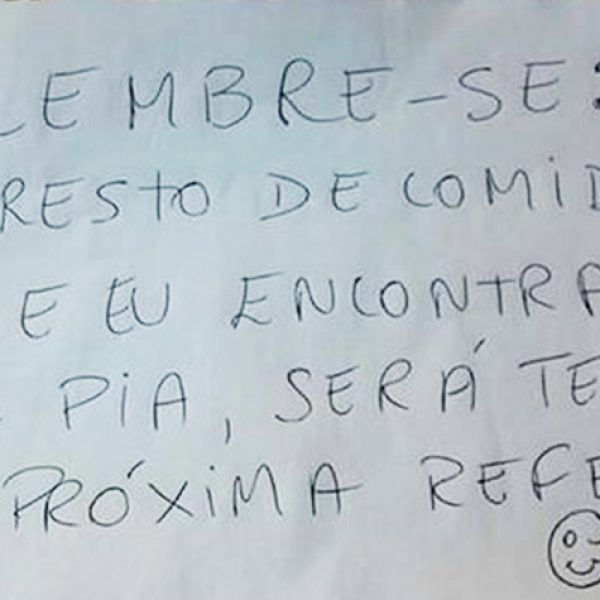 LEMBRE-SE:
RESTO DE COMID
E EU ENCONTRA
PIA, SERÁ TE
PRÓXIMA REFE